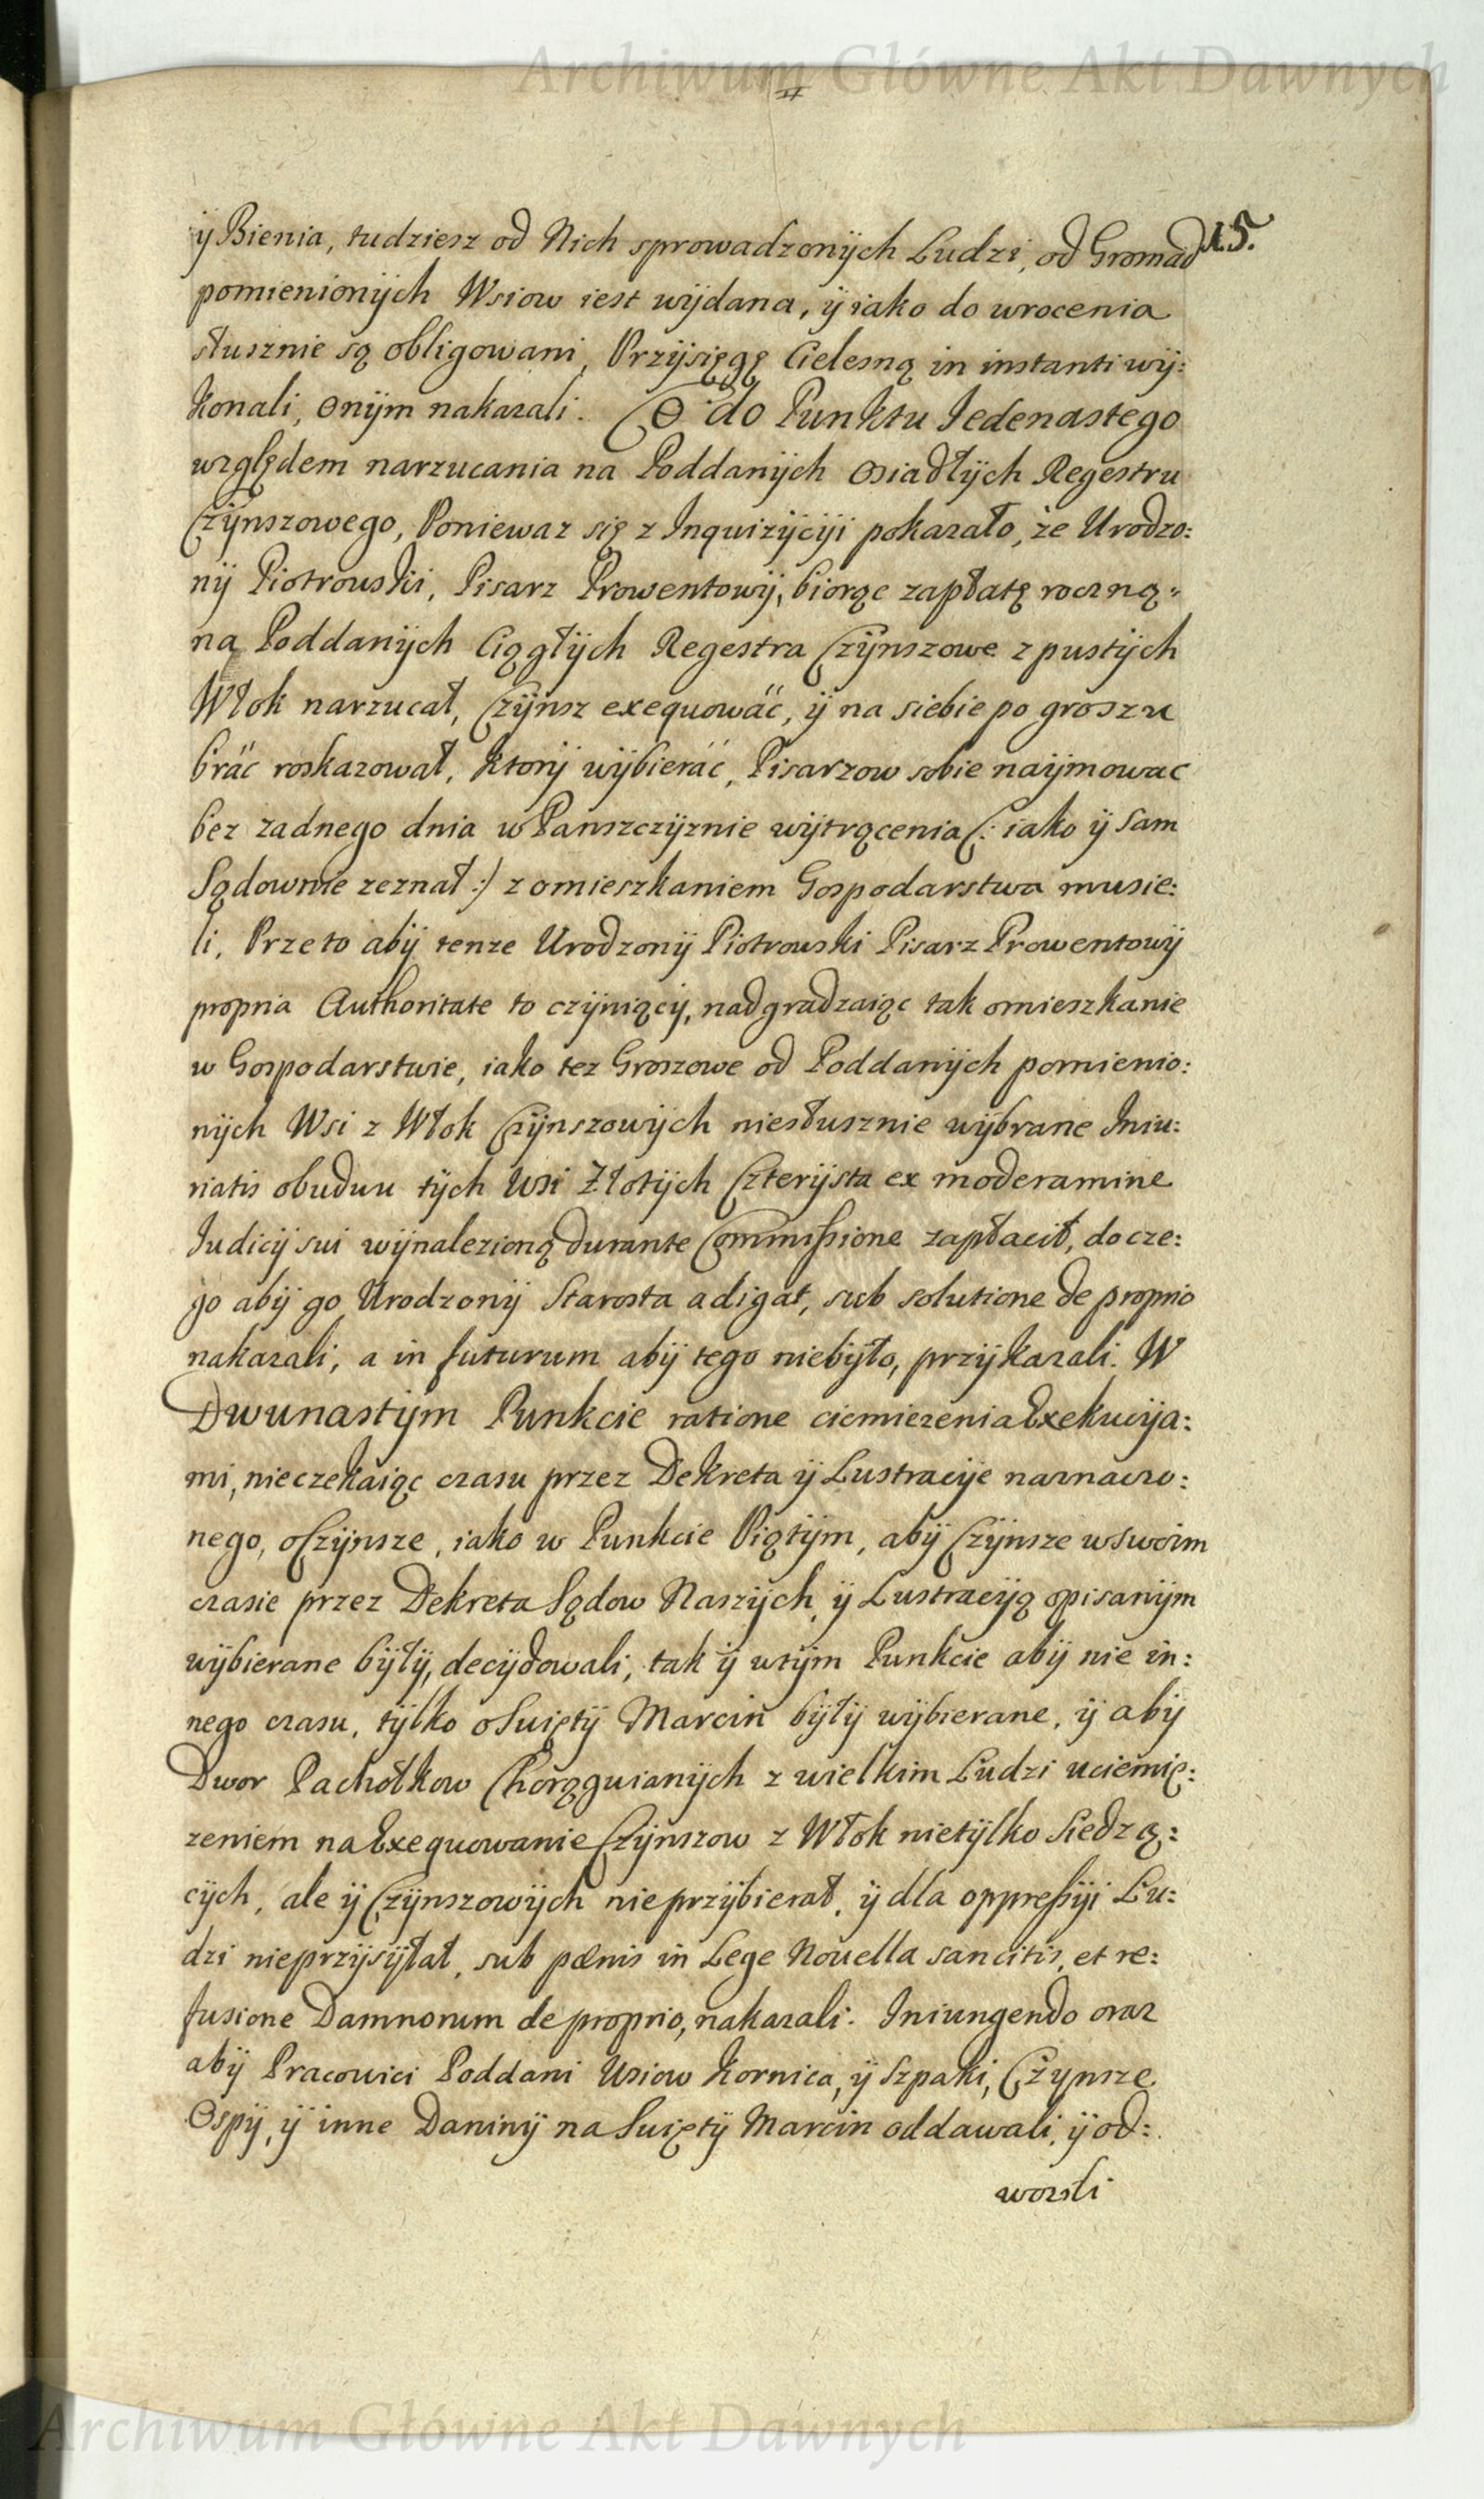 Archiwum Główne Akt Dawnych
15.
ÿ Bienia, tudziesz od Nich sprowadzonÿch Ludzi, od Gromad
pomienionÿch Wsiow iest wÿdana, ÿ iako do wrocenia
słusznie są obligowani, Przÿsięgę Cielesną in instanti wÿ:
konali, onÿm nakazali. Co do Punktu Iedenastego
względem narzucania na Poddanÿch osiadłÿch Regestru
Czÿnszowego, Poniewaz się z Inquizÿcÿi pokazało, że Urodzo:
nÿ Piotrowski, Pisarz Prowentowÿ, biorąc zapłatę roczną
na Poddanÿch Ciągłÿch Regestra Czÿnszowe z pustÿch
Włok narzucał, Czÿnsz exequować, ÿ na siebie po groszu
brać roskazował, ktorÿ wÿbierać, Pisarzow sobie naÿmowac
bez zadnego dnia w Panszczÿznie wÿtrącenia (: iako ÿ sam
Sądownie zeznał :) z omieszkaniem Gospodarstwa musie:
li. Przeto abÿ tenze Urodzonÿ Piotrowski Pisarz Prowentowÿ
propria Authoritate to czÿniącÿ, nadgradzaiąc tak omieszkanie
w Gospodarstwie, iako tez Groszowe od Poddanÿch pomienio:
nÿch Wsi z Włok Czÿnszowÿch niesłusznie wÿbrane Iniu:
riatis obudwu tÿch Wsi Złotÿch Czterÿsta ex moderamine
Iudicÿ sui wÿnalezioną durante Commissione zapłacił, do cze:
go abÿ go Urodzonÿ Starosta adigat, sub solutione de proprio
nakazali, a in futurum abÿ tego niebÿło, przÿkazali. W
Dwunastÿm Punkcie ratione ciemiezenia Exekucÿa:
mi, nieczekaiąc czasu przez Dekreta ÿ Lustracÿe naznaczo:
nego, o Czÿnsze, iako w Punkcie Piątÿm, abÿ Czÿnsze w swoim
czasie przez Dekreta Sądow Naszÿch, ÿ Lustracÿą opisanÿm
wÿbierane bÿłÿ, decÿdowali, tak ÿ wtÿm Punkcie abÿ nie in:
nego czasu, tÿlko o Swiętÿ Marcin bÿłÿ wÿbierane, ÿ abÿ
Dwor Pachołkow Chorągwianÿch z wielkim Ludzi uciemię:
zeniem na Exequowanie Czÿnszow z Włok nietÿlko Siedzą:
cÿch, ale ÿ Czÿnszowÿch nieprzÿbierał, ÿ dla oppressÿi Lu:
dzi nieprzÿsÿłał, sub pœnis in Lege Novella sancitis, et re:
fusione Damnorum de proprio, nakazali. Iniungendo oraz
abÿ Pracowici Poddani Wsiow Kornica, ÿ Szpaki, Czÿnsze
Ospÿ, ÿ inne Daninÿ na Swiętÿ Marcin oddawali, ÿ od:
wozili
Archiwum Główne Akt Dawnych